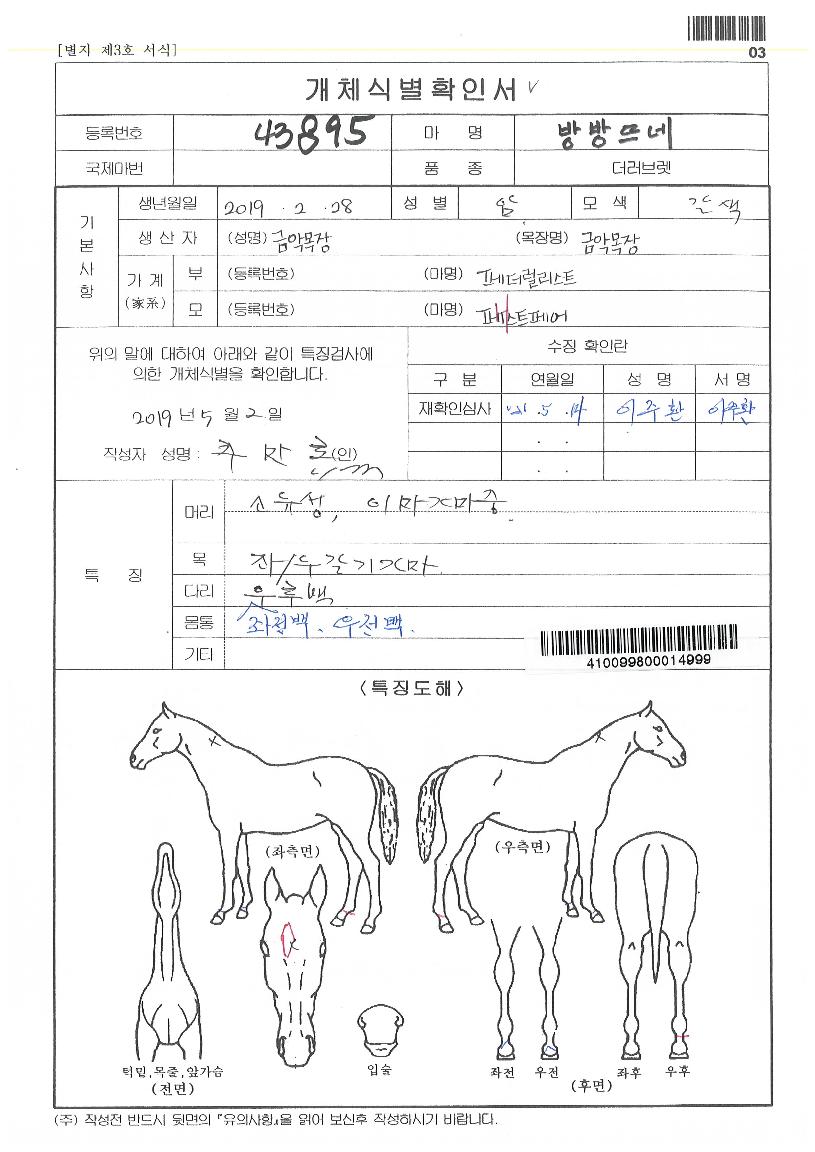 [별지 제3호 서식]
03
개체식별확인서 √
등록번호 43895 마 명 방방뜨네
국제마번 품 종 더러브렛
기본사항
생년월일 2019 . 2 . 28 성 별 암 모 색 갈색
생 산 자 (성명) 금악목장 (목장명) 금악목장
가 계 (家系)
부 (등록번호) (마명) 페더럴리스트
모 (등록번호) (마명) 퍼스트페어
위의 말에 대하여 아래와 같이 특징검사에
의한 개체식별을 확인합니다.
2019 년 5 월 2 일
작성자 성명 : (인)
수징 확인란
구 분 연월일 성 명 서 명
재확인심사 '21 . 5 . 14 이주환 이주환
. .
. .
특 징
머리 소유성, 이마가마중.
목 좌/우갈기가마.
다리 우후백
몸통 좌전백、우전백.
기타
410099800014999
<특징도해>
(좌측면) (우측면)
턱밑,목줄,앞가슴
(전면)
입술
좌전 우전 좌후 우후
(후면)
(주) 작성전 반드시 뒷면의 『유의사항』을 읽어 보신후 작성하시기 바랍니다.